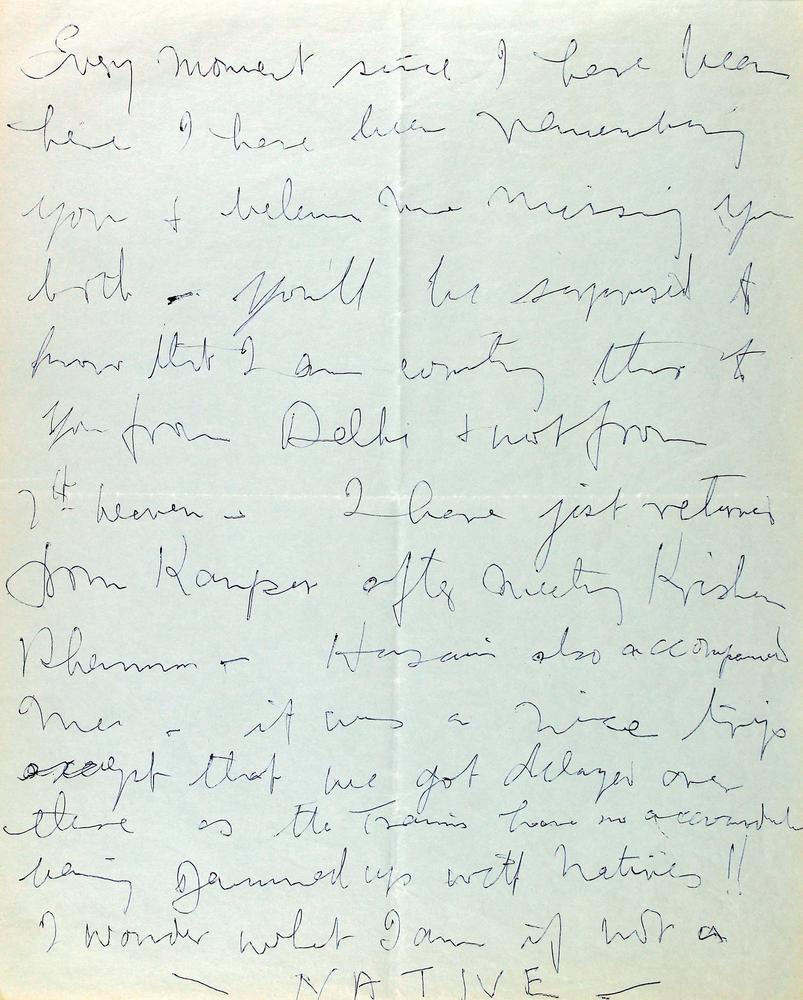 Every moment since I have been
here I have been remembering
you + believe me missing you
both - you'll be surprised to
know that I am writing this to
you from Delhi + not from
7th heaven - I have just returned
from Kanpur after meeting Krishen
Khanna - Husain also accompanied
me - it was a nice trip
except that we got delayed over
there as the Trains have no
being jammed up with Natives !!
I wonder what I am if not a
- NATIVE -